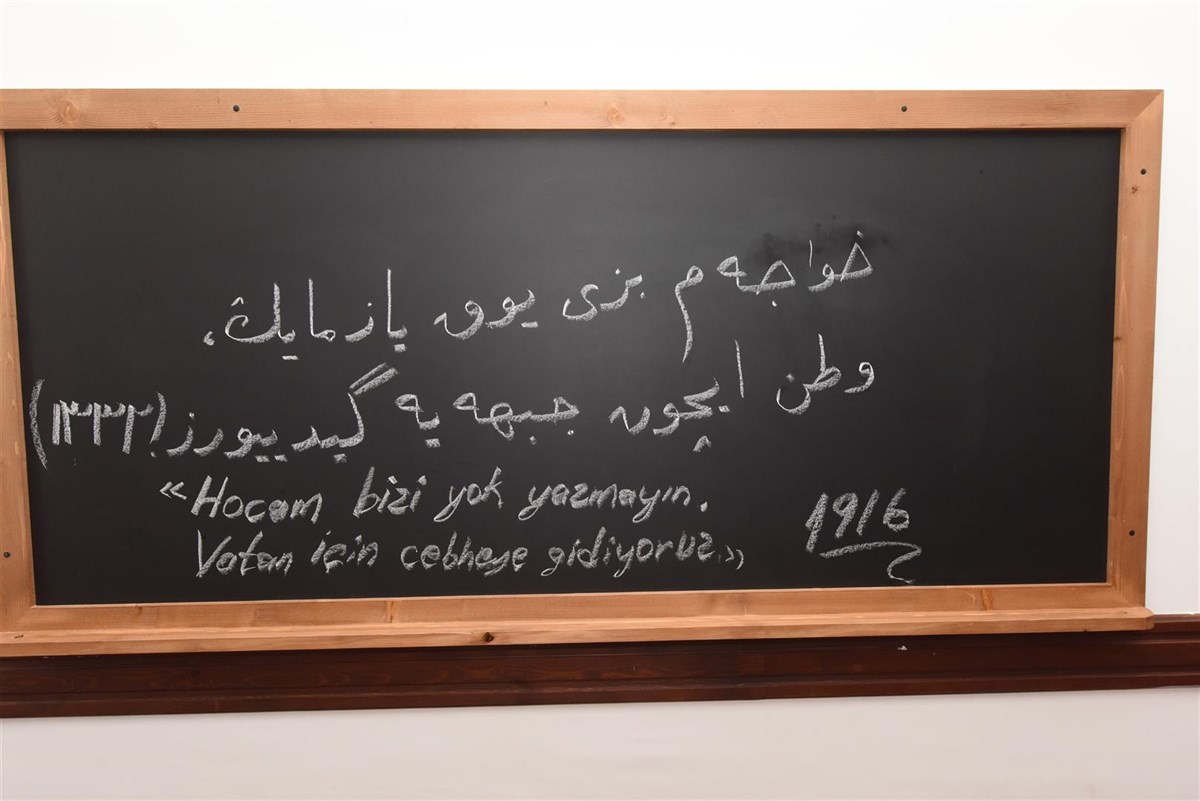 خواجه م بزى يوق يازمايڭ.
وطن ايچون جبهه يه گيدييورز (١٣٣٢)
«Hocam bizi yok yazmayın.
Vatan için cebheye gidiyoruz.»
1916